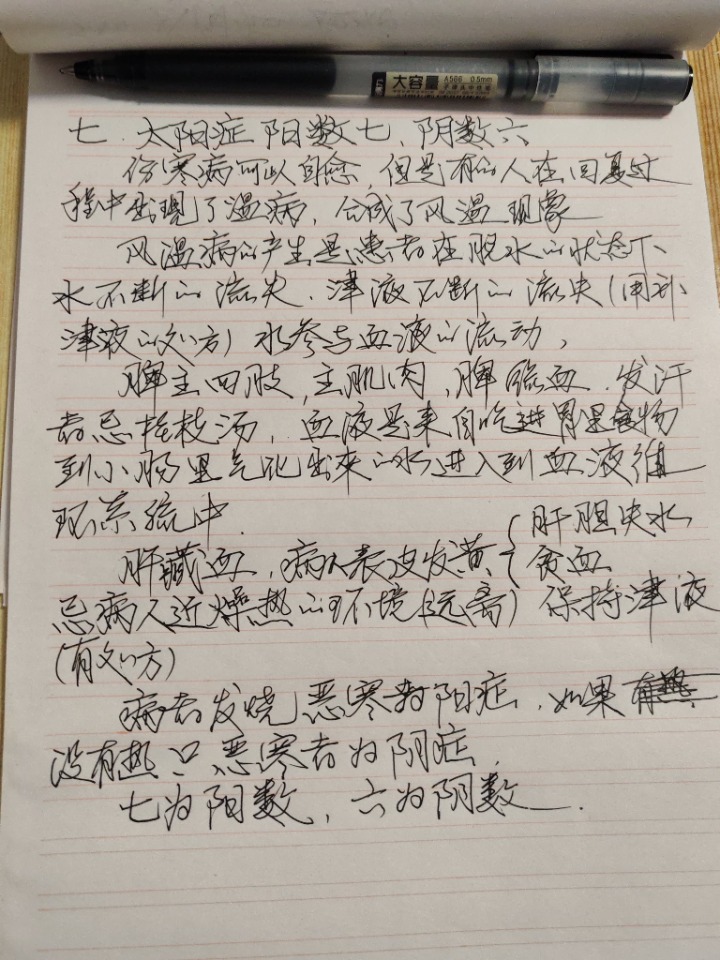 大容量 A566 0.5mm
七.太阳症 阳数七、阴数六
伤寒病可以自愈，但是有的人在回复过
程中出现了温病，合成了风温现象
风温病的产生是患者在脱水的状态下
水不断的流失.津液不断的流失(用补
津液的处方)水参与血液的流动，
脾主四肢，主肌肉，脾统血.发汗
者忌桂枝汤，血液是来自吃进胃里食物
到小肠里气化出来的水进入到血液循
环系统中.
肝藏血，病人表皮发黄{肝胆失水
贫血
忌病人近燥热的环境(远离)保持津液
(有处方)
病者发烧恶寒为阳症.如果
没有热只恶寒者为阴症.
七为阳数，六为阴数.